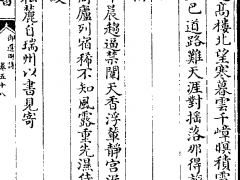 高樓北望寒暮雲千嶂暝積雪
已道路難天涯對搖落那得
晨趨逼禁闥天香浮輦靜宮
廬列宿稀不知風露重先濕侍
松麓自瑞州以書見寄
御選明詩 卷五十八